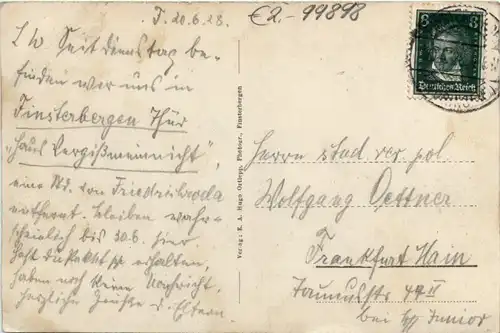 F. 20.6.28.
€2.- 99898
L W Seit Dienstag be-
finden wir uns in
Finsterbergen Thür
"Haus Vergißmeinnicht",
eine Std. von Friedrichroda
entfernt. bleiben wahr-
scheinlich bis 30.6. hier
Hast du Paket erhalten,
haben noch keine Nachricht.
herzliche Grüße d. Eltern.
Verlag: E. A. Hugo Finsterbergen
8 8
Deutsches Reich
Herrn stud rer pol
Wolfgang Oettner
Frankfurt Main
Taunusstr 47 II
bei Junior